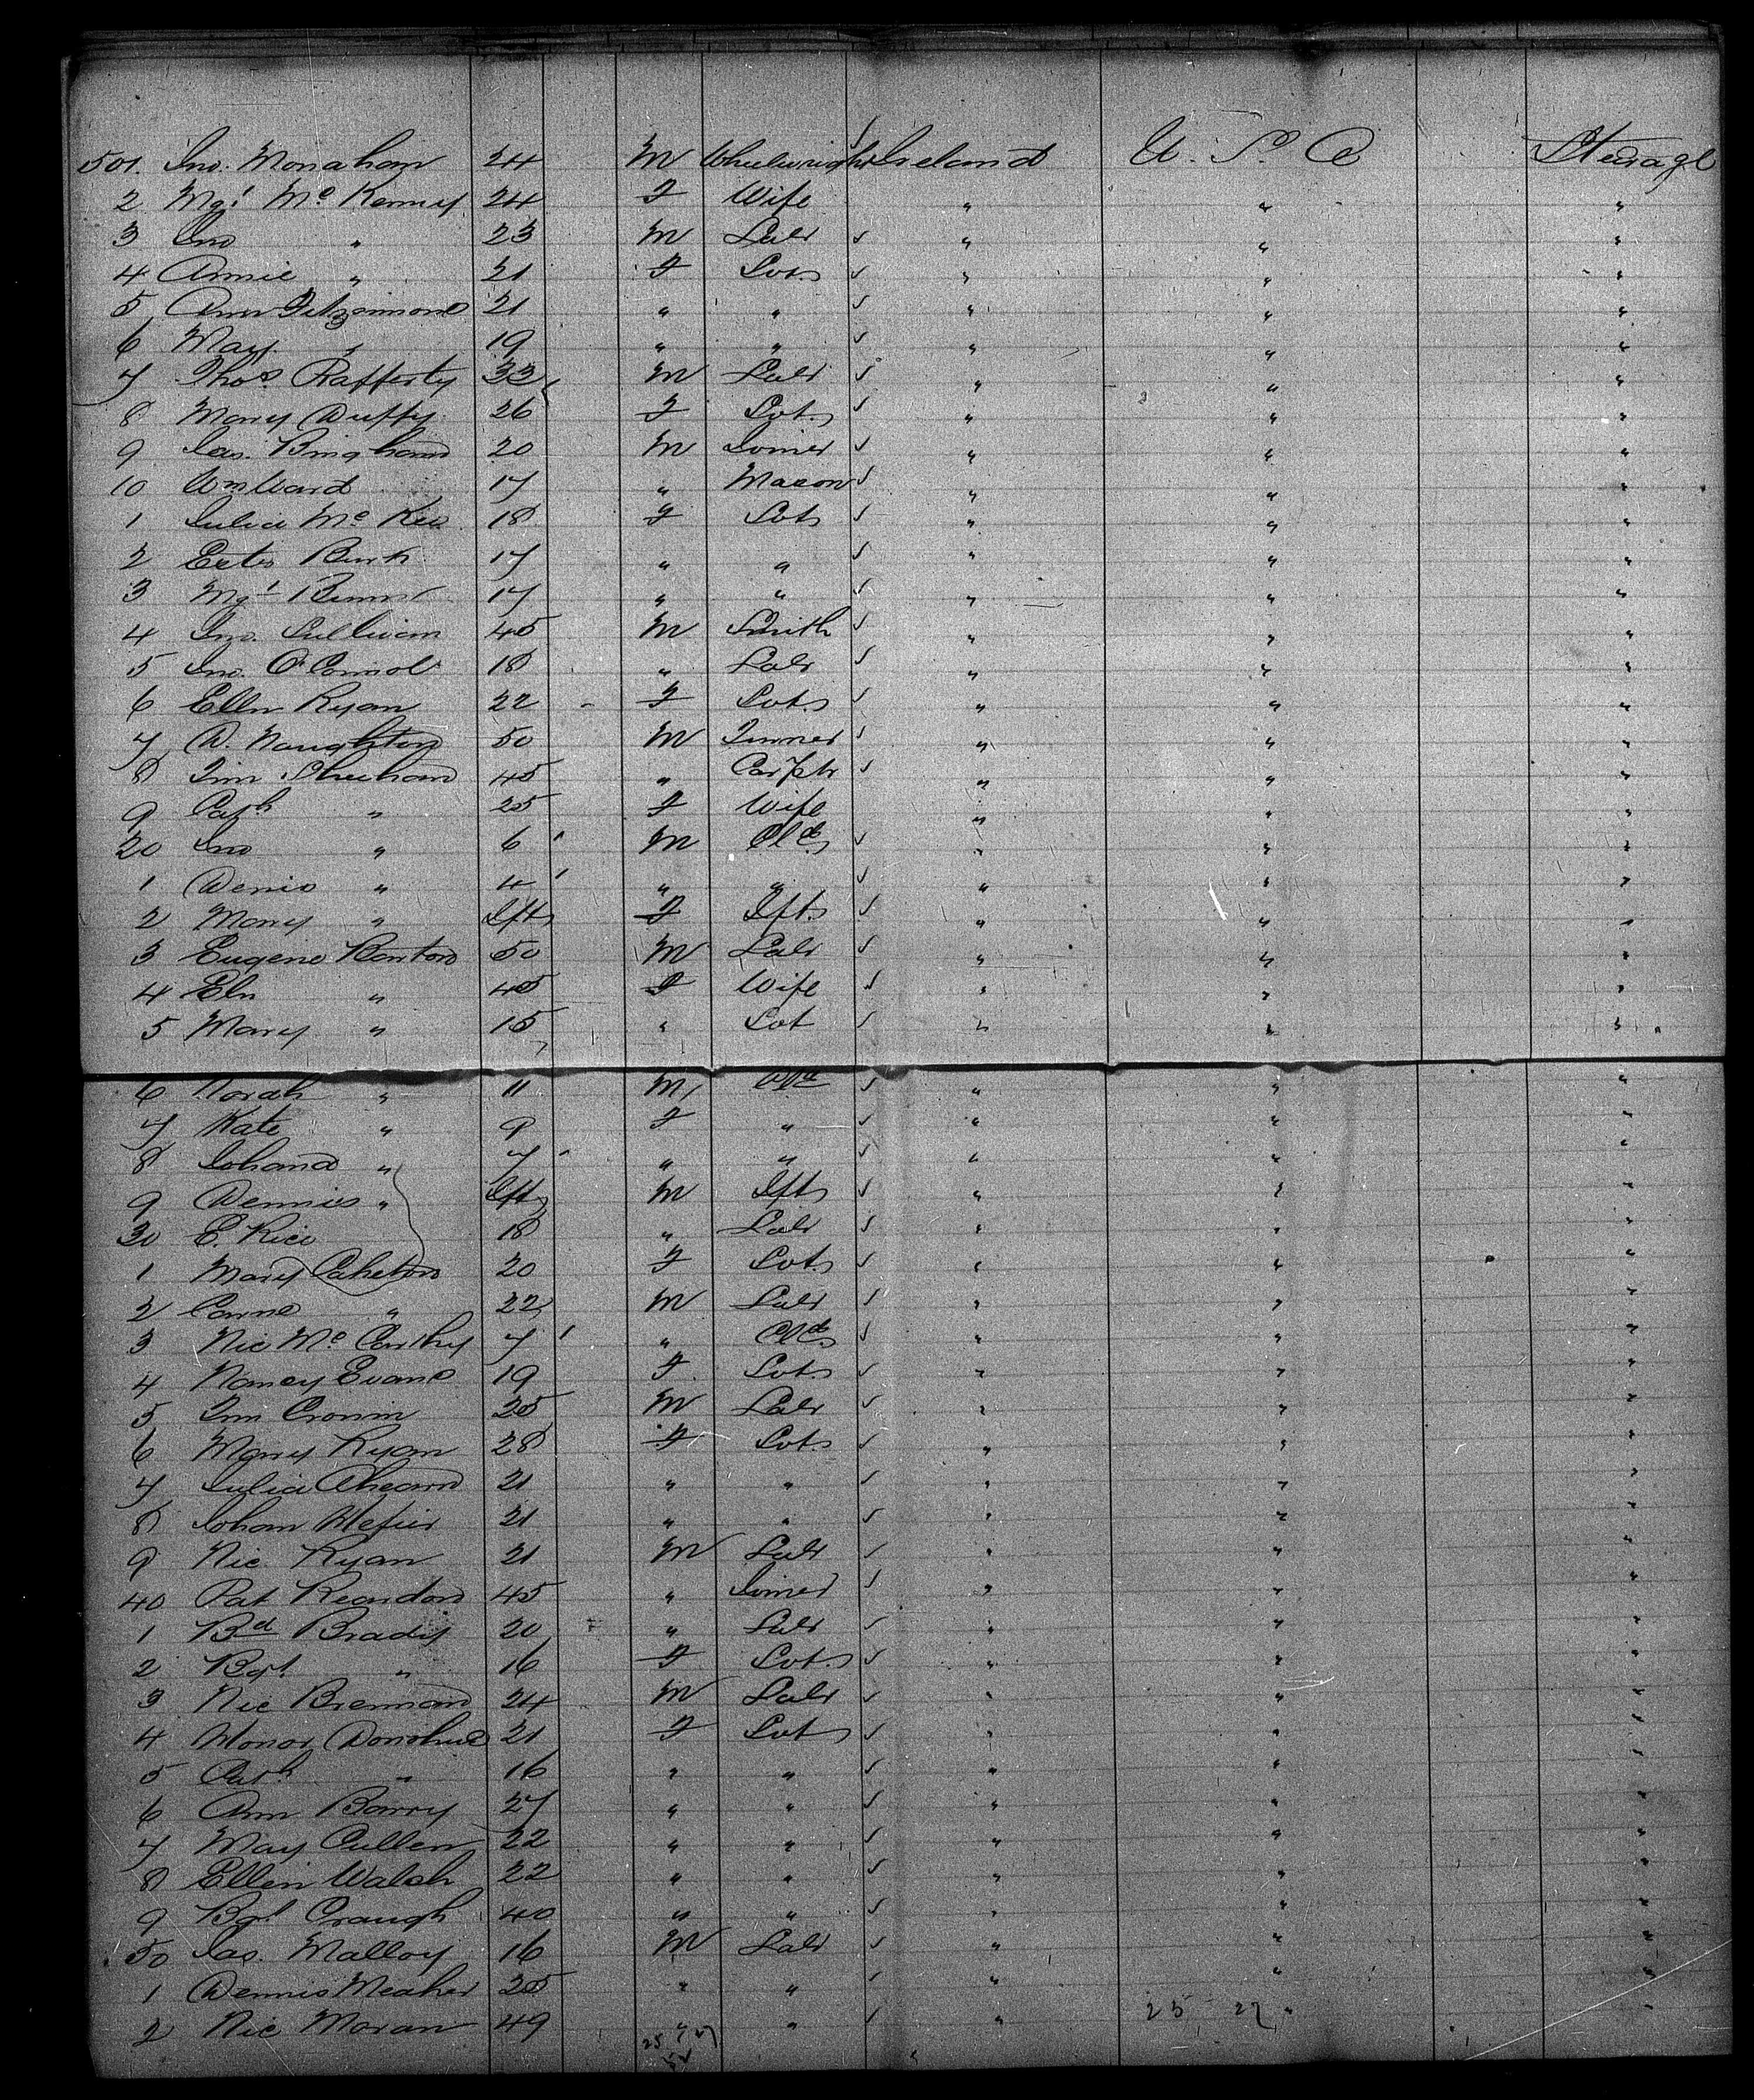 501. Jno. Monahan 24 M Wheelwright Ireland U. S. A Steerage
2 Mgt Mc Kenny 24 F Wife " " "
3 Jno " 23 M Labr " " "
4 Annie " 21 F Svt. " " "
5 Ann Fitzsimons 21 " " " " "
6 Mary " 19 " " " " "
7 Thos Rafferty 33 M Labr " " "
8 Mary Duffy 26 F Svt. " " "
9 Jas. Bingham 20 M Joiner " " "
10 Wm Ward 17 " Mason " " "
1 Julia Mc Kee 18 F Svt " " "
2 Burk 17 " " " " "
3 Mgt 17 " " " " "
4 Jno. Sullivan 45 M Smith " " "
5 Jno. O'Connol 18 " Labr " " "
6 Ellen Ryan 22 F Svt. " " "
7 D. Naughton 50 M " " "
8 Tim Sheehan 45 " Carptr " " "
9 Cath " 25 F Wife " " "
20 Jno " 6 M Chd " " "
1 Denis " 4 " " " " "
2 Mary " Ift F Ift. " " "
3 Eugene 50 M Labr " " "
4 Eln " 45 F Wife " " "
5 Mary " 15 " Svt " " "
6 Norah " 11 M Chd " " "
7 Kate " 9 F " " " "
8 Johana " 7 " " " " "
9 Dennis " Ift M Ift " " "
30 E. Rice 18 " Labr " " "
1 Mary 20 F Svt. " " "
2 " 22 M Labr " " "
3 Nic Mc Carthy 7 " Chd " " "
4 Nancy Evans 19 F Svt " " "
5 Tim Cronin 25 M Labr " " "
6 Mary Ryan 28 F Svt. " " "
7 Julia Ahearn 21 " " " " "
8 Johan 21 " " " " "
9 Nic. Ryan 21 M Labr " " "
40 Pat Reardon 45 " Joiner " " "
1 Bd Brady 20 " Labr " " "
2 Bgt. " 16 F Svt. " " "
3 Nic Brennan 24 M Labr " " "
4 Honor Donohue 21 F Svt " " "
5 Cath " 16 " " " " "
6 Ann Barry 27 " " " " "
7 May Cullen 22 " " " " "
8 Ellen Walsh 22 " " " " "
9 Bgt Craugh 40 " " " " "
50 Jas. Malloy 16 M Labr " " "
1 Dennis Meaher 25 " " " " "
2 Nic Moran 49 " " " 25 27 " "
25 27